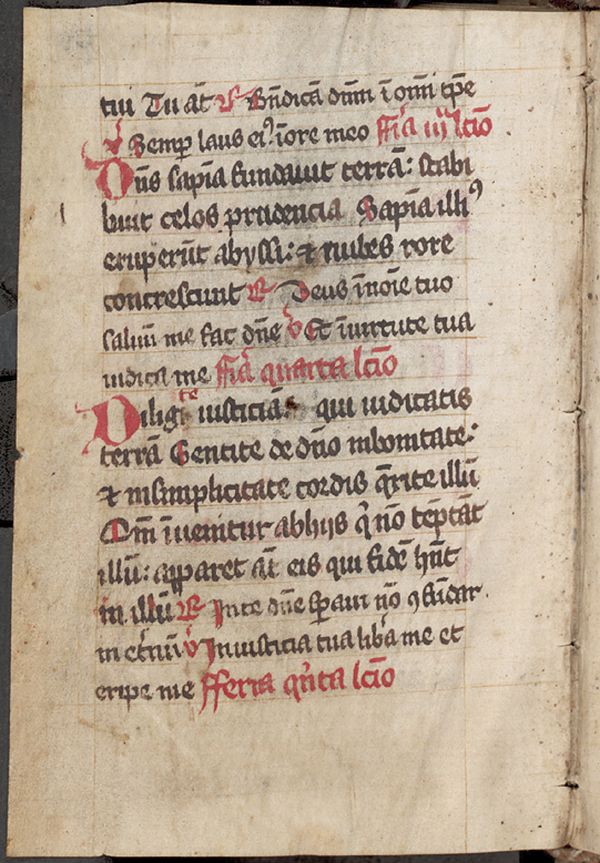 tui Tu āt ℟ Bn̄dicā dnm̄ ī om̄i tp̄e
℣ Semp̄ laus eiꝰ īore meo ffīa iij lc̄io
Dn̄s sapīa fundauit terrā: stabi
liuit celos prudencia Sapīa illiꝰ
eruperūt abyssi: et nubes rore
concrescunt ℟ Deus īnoīe tuo
saluū me fac dn̄e ℣ Et īuirtute tua
iudica me ffīa quarta lc̄io
Diligite iusticiā: qui iudicatis
terrā Sentite de dn̄o inbonitate:
et insimplicitate cordis q̄rite illū
Qm̄ īuenitur abhijs q̄ nō tēptāt
illū: apparet aūt eis qui fidē hn̄t
in illū ℟ Inte dn̄e sp̄aui nō ꝯfūdar
in et̄nū ℣ Iniusticia tua lib̄a me et
eripe me fferia qn̄ta lc̄io